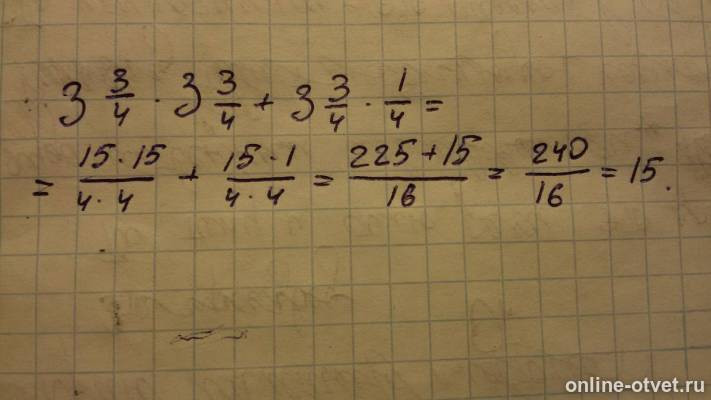 3 3/4 · 3 3/4 + 3 3/4 · 1/4 =
= 15·15/4·4 + 15·1/4·4 = 225+15/16 = 240/16 = 15.
online-otvet.ru